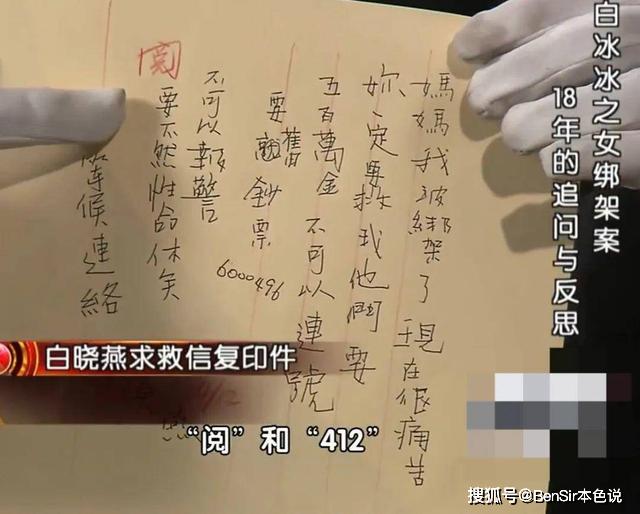 白冰冰之女绑架案
18年的追问与反思
媽媽我被綁架了現在很痛苦
妳一定要救我他們要
五百萬金不可以連號
要舊鈔票
6000496
不可以報警
要不然性命休矣
候連絡
閱
白晓燕求救信复印件
“阅”和“412”
搜狐号@BenSir本色说